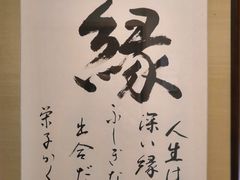 縁
人生は
深い縁
ふしぎな
出合だ
栄子かく